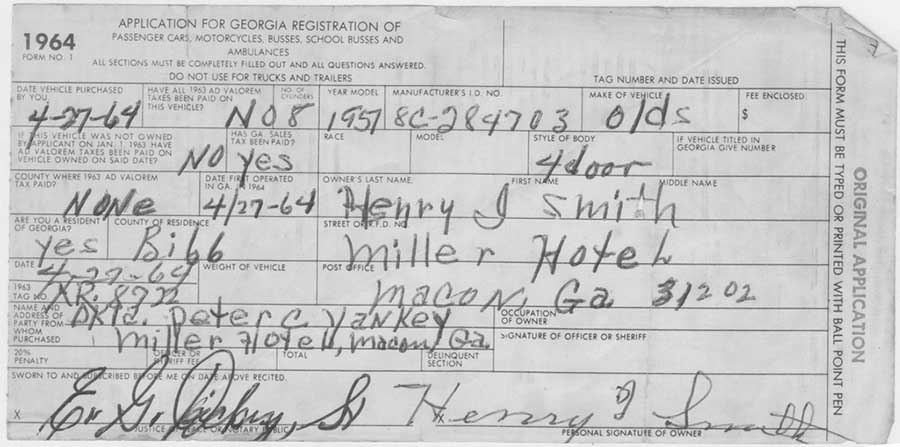 1964
FORM NO. 1
APPLICATION FOR GEORGIA REGISTRATION OF
PASSENGER CARS, MOTORCYCLES, BUSSES, SCHOOL BUSSES AND
AMBULANCES
ALL SECTIONS MUST BE COMPLETELY FILLED OUT AND ALL QUESTIONS ANSWERED.
DO NOT USE FOR TRUCKS AND TRAILERS
TAG NUMBER AND DATE ISSUED
DATE VEHICLE PURCHASED BY YOU.
4-27-64
HAVE ALL 1963 AD VALOREM TAXES BEEN PAID ON THIS VEHICLE?
NO
NO. OF CYLINDERS
8
YEAR MODEL
1957
MANUFACTURER'S I.D. NO.
8C-284703
MAKE OF VEHICLE
Olds
FEE ENCLOSED
$
IF THIS VEHICLE WAS NOT OWNED
BY APPLICANT ON JAN. 1 1963 HAVE
AD VALOREM TAXES BEEN PAID ON
VEHICLE OWNED ON SAID DATE?
NO
HAS GA. SALES TAX BEEN PAID?
yes
RACE
MODEL
STYLE OF BODY
4door
IF VEHICLE TITLED IN GEORGIA GIVE NUMBER
COUNTY WHERE 1963 AD VALOREM TAX PAID?
NONe
DATE FIRST OPERATED IN GA. IN 1964
4/27-64
OWNER'S LAST NAME.
FIRST NAME
MIDDLE NAME
Henry J Smith
ARE YOU A RESIDENT OF GEORGIA?
yes
COUNTY OF RESIDENCE
Bibb
STREET OR R.F.D. NO.
Miller Hotel
DATE
4-27-64
WEIGHT OF VEHICLE
POST OFFICE
Macon, Ga 31202
1963 TAG NO.
8722
NAME AND
ADDRESS OF
PARTY FROM
WHOM
PURCHASED
Peter C Yankey
Miller Hotel, Macon, Ga.
OCCUPATION OF OWNER
SIGNATURE OF OFFICER OR SHERIFF
20% PENALTY
OFFICER OR SHERIFF FEE
TOTAL
DELINQUENT SECTION
SWORN TO AND SUBSCRIBED BEFORE ME ON DATE ABOVE RECITED.
X
Henry J Smith
JUSTICE OF PEACE OR NOTARY PUBLIC
PERSONAL SIGNATURE OF OWNER
THIS FORM MUST BE TYPED OR PRINTED WITH BALL POINT PEN
ORIGINAL APPLICATION